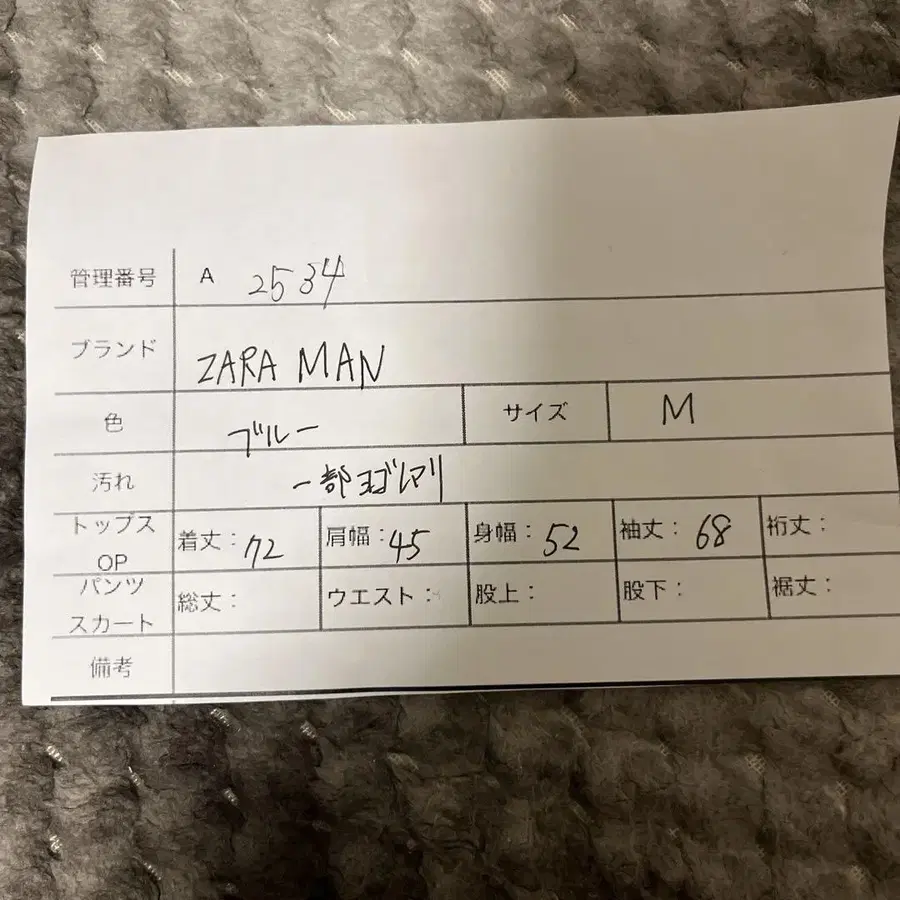 管理番号 A 2534
ブランド ZARA MAN
色 ブルー サイズ M
汚れ 一部ヨゴレアリ
トップス OP 着丈：72 肩幅：45 身幅：52 袖丈：68 裄丈：
パンツ スカート 総丈： ウエスト： 股上： 股下： 裾丈：
備考